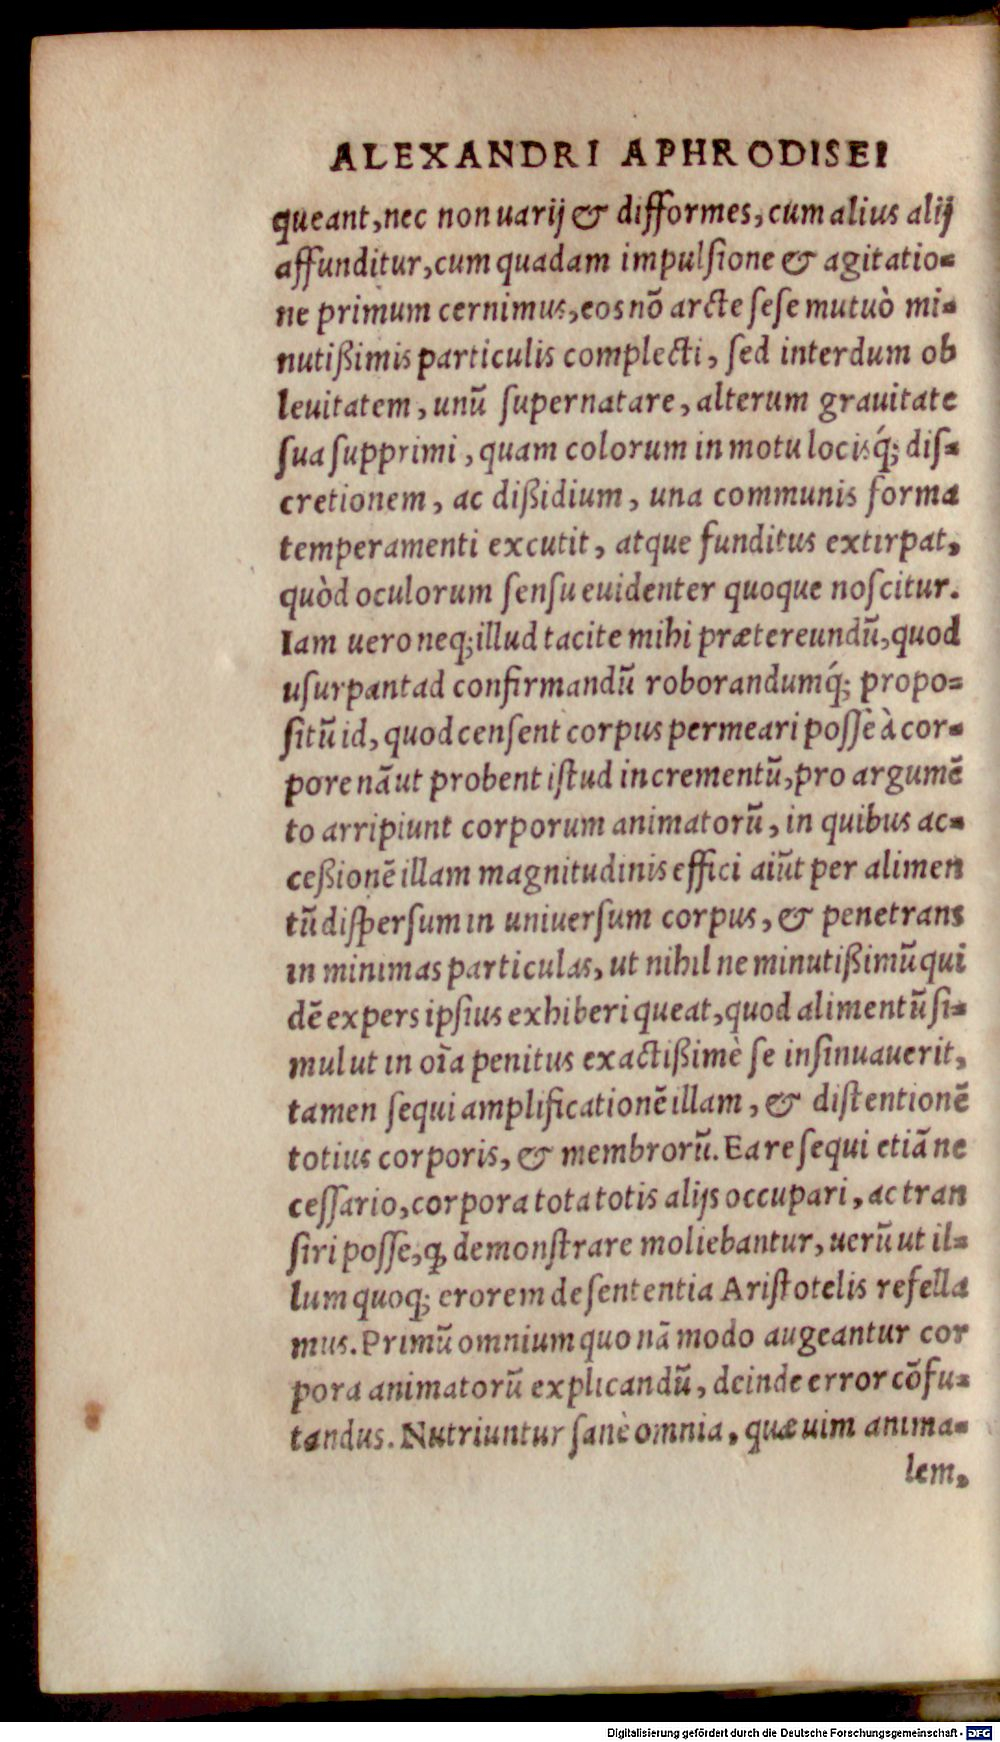 ALEXANDRI APHRODISEI
queant, nec non uarij & difformes, cum alius alij
affunditur, cum quadam impulſione & agitatio-
ne primum cernimus, eos nō arcte ſeſe mutuò mi-
nutißimis particulis complecti, ſed interdum ob
leuitatem, unū ſupernatare, alterum grauitate
ſua ſupprimi, quam colorum in motu locisq́; diſ-
cretionem, ac dißidium, una communis forma
temperamenti excutit, atque funditus extirpat,
quòd oculorum ſenſu euidenter quoque noſcitur.
Iam uero neq; illud tacite mihi prætereundū, quod
uſurpant ad confirmandū roborandumq́; propo-
ſitū id, quod cenſent corpus permeari poſſe à cor-
pore nā ut probent iſtud incrementū, pro argumē
to arripiunt corporum animatorū, in quibus ac-
ceßionē illam magnitudinis effici aiūt per alimen
tū diſperſum in uniuerſum corpus, & penetrans
in minimas particulas, ut nihil ne minutißimū qui
dē expers ipſius exhiberi queat, quod alimentū ſi-
mul ut in oīa penitus exactißimè ſe inſinuauerit,
tamen ſequi amplificationē illam, & diſtentionē
totius corporis, & membrorū. Ea re ſequi etiā ne
ceſſario, corpora tota totis alijs occupari, ac tran
ſiri poſſe, ꝙ demonſtrare moliebantur, uerū ut il-
lum quoq; erorem de ſententia Ariſtotelis refella
mus. Primū omnium quo nā modo augeantur cor
pora animatorū explicandū, deinde error cōfu-
tandus. Nutriuntur ſanè omnia, quæ uim anima-
lem,
Digitalisierung gefördert durch die Deutsche Forschungsgemeinschaft - DFG